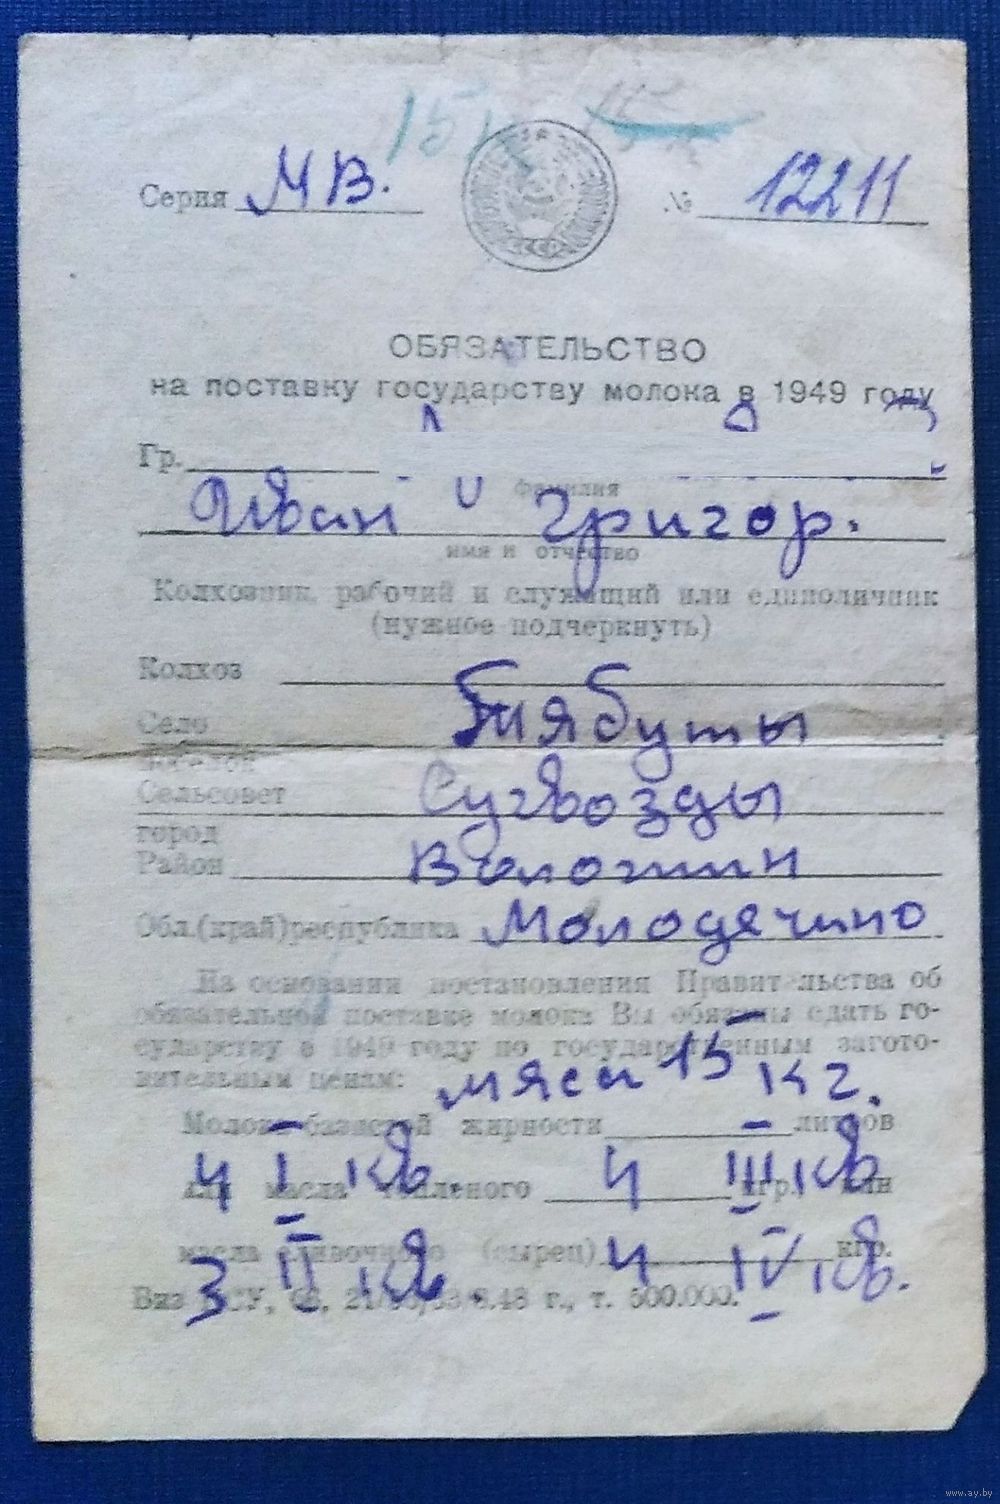 15
Серия МВ. № 12211
ОБЯЗАТЕЛЬСТВО
на поставку государству молока в 1949 году
Гр.
фамилия
Иван Григор.
имя и отчество
Колхозник, рабочий и служащий или единоличник
(нужное подчеркнуть)
Колхоз
Село Биябуты
Сельсовет Сугвозды
город
Район Воложин
Обл.(край)республика Молодечно
На основании постановления Правительства об
обязательной поставке молока Вы обязаны сдать го-
сударству в 1949 году по государственным загото-
вительным ценам: мяса 15 кг.
Молока базисной жирности литров
4 I кв. 4 III кв.
или масла топленого кгр. или
масла сливочного (сырец) кгр.
3 II кв. 4 IV кв.
48 г., т. 500.000.
www.ay.by